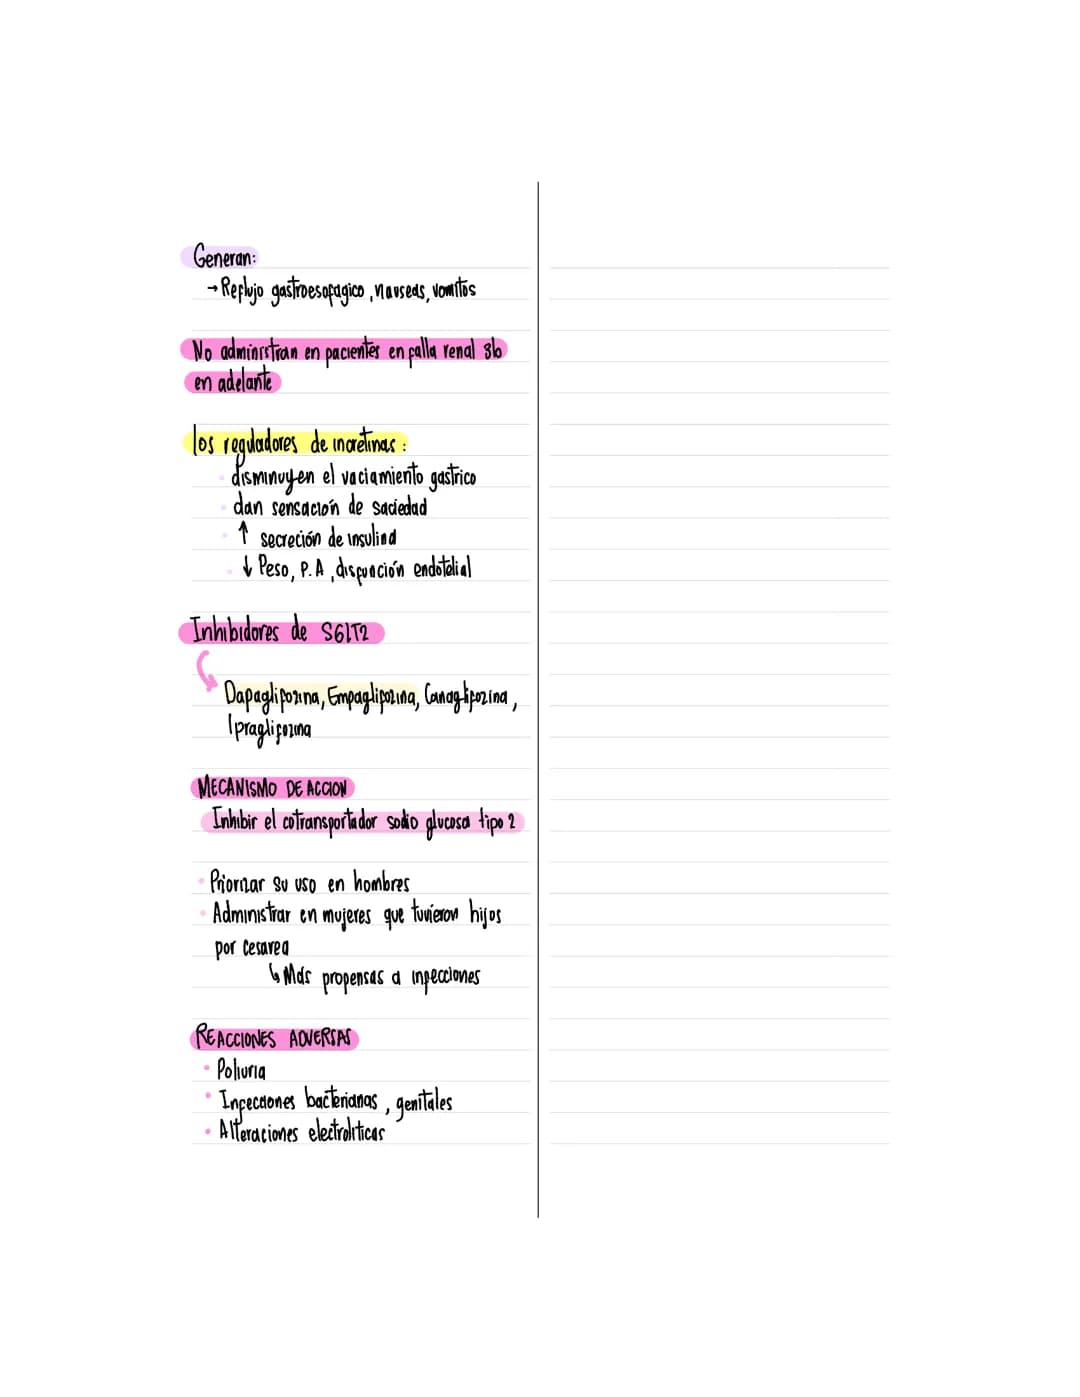 Generan:
→ Reflujo gastroesofagico, nauseas, vomitos
No administran en pacientes en falla renal 3b
en adelante
los reguladores de incretinas:
• disminuyen el vaciamiento gastrico
• dan sensación de saciedad
• ↑ secreción de insulina
• ↓ Peso, P.A, disfunción endotelial
Inhibidores de SGLT2
Dapaglifozina, Empaglifozina, Canaglifozina,
Ipraglifozina
MECANISMO DE ACCION
Inhibir el cotransportador sodio glucosa tipo 2
• Priorizar su uso en hombres
• Administrar en mujeres que tuvieron hijos
por cesarea
↳ Más propensas a infecciones
REACCIONES ADVERSAS
• Poliuria
• Infecciones bacterianas, genitales
• Alteraciones electroliticas